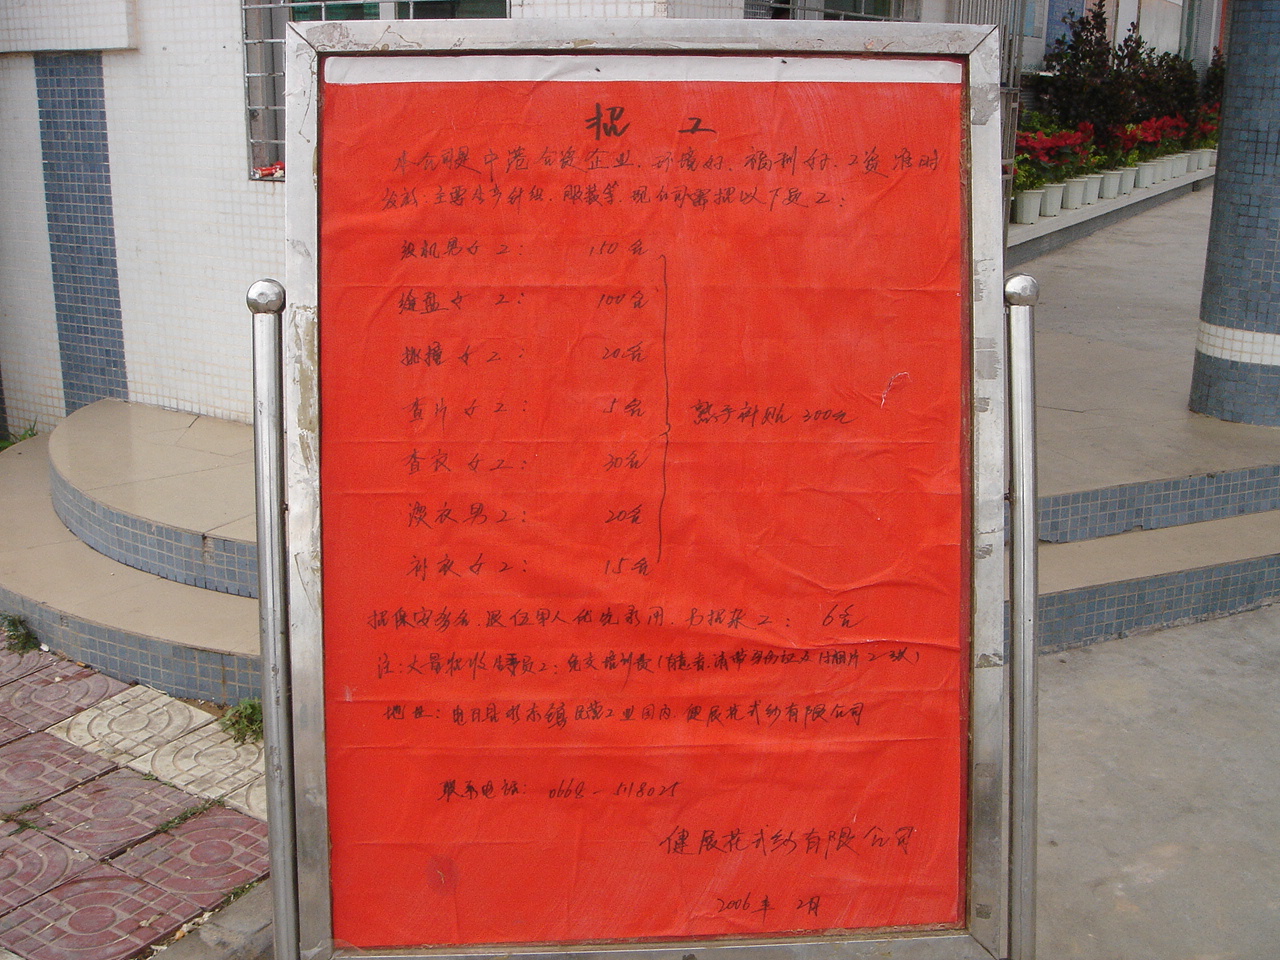 招 工
本公司是中港合资企业、环境好、福利好、工资准时
发放、主要生产针织、服装等,现公司需招以下员工:
织机男女工: 150名
缝盘女工: 100名
挑撞女工: 20名
查片女工: 5名
熟手补贴300元
查衣女工: 30名
烫衣男工: 20名
补衣女工: 15名
招保安多名、退伍军人优先录用, 另招杂工: 6名
注:大量招收生手员工:免交培训费(有意者,请带身份证及付相片2张)
地址:电白县水东镇民营工业园内,健展花式纱有限公司
联系电话:0668-5118025
健展花式纱有限公司
2006年 2月